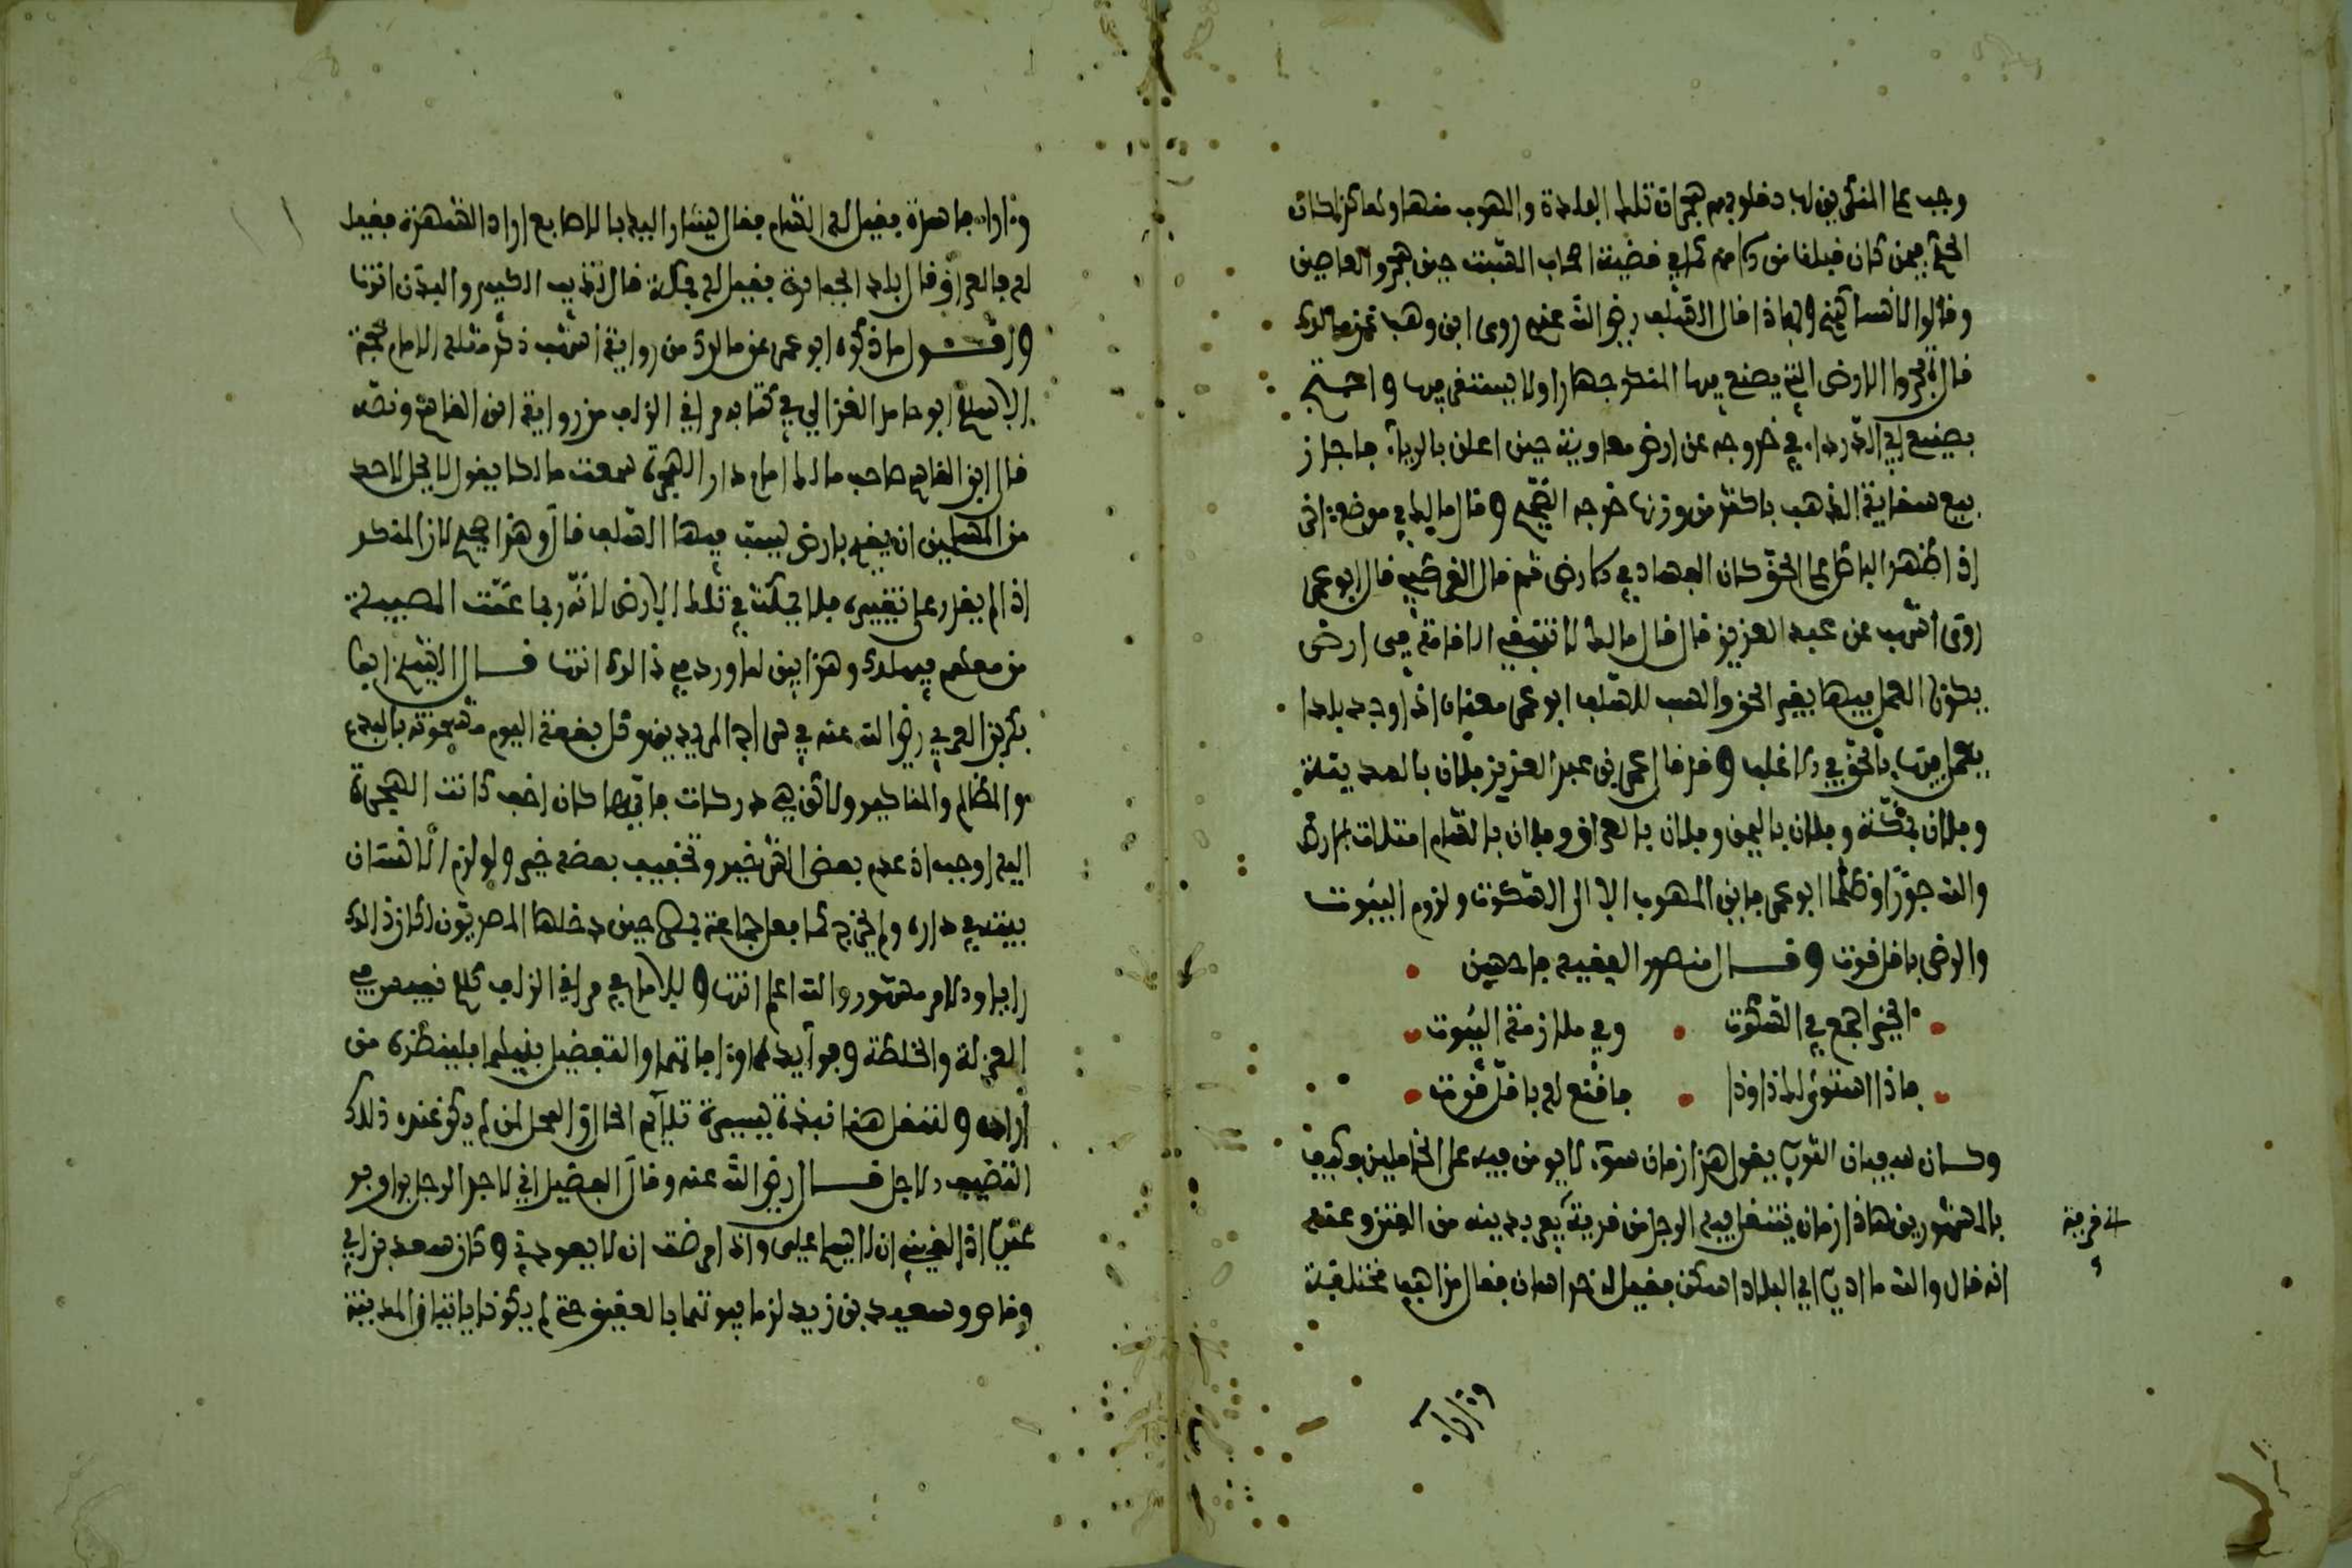 وجب على المنكرين لها دخلوبهم هجران تلك البلدة والهرب منها ولهاكزا كان
الحكم فيمن كان قبلنا من الامم كما في قضية اصحاب السبت حين هجروا العاصين
وقالوا لانساكنهم وبهاذا قال السلف رضي الله عنهم روى ابن وهب عن مالك
قال تهجر الارض التي يصنع فيها المنكر جهارا ولا يستقر فيها واحتج
بصنيع ابي الدرداء في خروجه عن ارض معاوية حين اعلن بالرباء فاجاز
بيع سقاية الذهب باكثر من وزنها خرجه الصحيح وقال مالك في موضع اخر
اذا ظهر الباطل على الحق كان الفساد في الارض ثم قال القرطبي قال ابو عمر
روى اشهب عن عبد العزيز قال قال مالك لا تنبغي الاقامة في ارض
يكون العمل فيها بغير الحق والسب للسلف ابو عمر معناه اذا وجد بلدا
يعمل فيه بالحق في الاغلب وقد قال عمر بن عبد العزيز فلان بالمدينة
وفلان بمكة وفلان باليمن وفلان بالعراق وفلان بالشام امتلات الارض
والله جورا وظلما ابو عمر فاين المهرب الا الى السكوت ولزوم البيوت
والرضى باقل قوت وقال منصور الفقيه فاحسن
الخير اجمع في السكوت وفي ملازمة البيوت
فاذا استوى لك ذا وذا فاقنع له باقل قوت
وكان سفيان الثوري يقول هذا زمان سوء لا يومن فيه على الخاملين فكيف
بالمشهورين هاذا زمان ينتقل فيه الرجل من قرية يفر بدينه من الفتن وعنه
الى قرية
انه قال والله ما ادري اي البلاد اسكن فقيل له خراسان فقال مذاهب مختلفة
وءاراء
وءاراء فاسدة فقيل له الشام فقال يشار اليه بالاصابع اراد الشهرة فقيل
له فالعراق قال بلد الجبابرة فقيل له مكة قال تذيب الكيس والبدن انتهى
واقول ما ذكره ابو عمر عن مالك من رواية اشهب ذكر مثله الامام حجة
الاسلام ابو حامد الغزالي في كتابه مراقي الزلف من رواية ابن القاسم ونصه
قال ابن القاسم صاحب مالك امام دار الهجرة سمعت مالكا يقول لا يحل لاحد
من المسلمين ان يقيم بارض يسب فيها السلف قال وهذا صحيح لان المنكر
اذا لم يقدر على تغييره فلا يمكث في تلك الارض لانه ربما عمت المصيبة
من معهم فيهلك وهذا بين لما ورد في ذالك انتهى قال الشيخ ابو
بكر بن العربي رضي الله عنه في سراج المريدين وقل بقعة اليوم مشحونة بالبدع
والمظالم والمناكير ولاكن هي دركات فايها كان اخف كانت الهجرة
اليه اوجب اذ عدم بعض الشر خير وتخفيف بعضه خير ولو لزم الانسان
بيته في داره ولم يخرج كما فعل جماعة بمصر حين دخلها المصريون لكان ذالك
رايا والامر مشهور والله اعلم انتهى وللامام في مراقي الزلف كلام نفيس في
العزلة والخلطة وفوايدهما وءافاتهما والتفضيل بينهما فلينظره من
اراده ولننقل هنا نبذة يسيرة تليم الحال والمحل لمن لم يكن عنده ذلك
التصنيف الاجل قال رضي الله عنه وقال الفضيل اني لاجد الرجل يوا وجو
عندي اذا لقيني ان لا يسلم علي واذا مرضت ان لا يعودني وكان سعد بن ابي
وقاص وسعيد بن زيد لزما بيوتهما بالعقيق حتى لم يكونا ياتيان المدينة